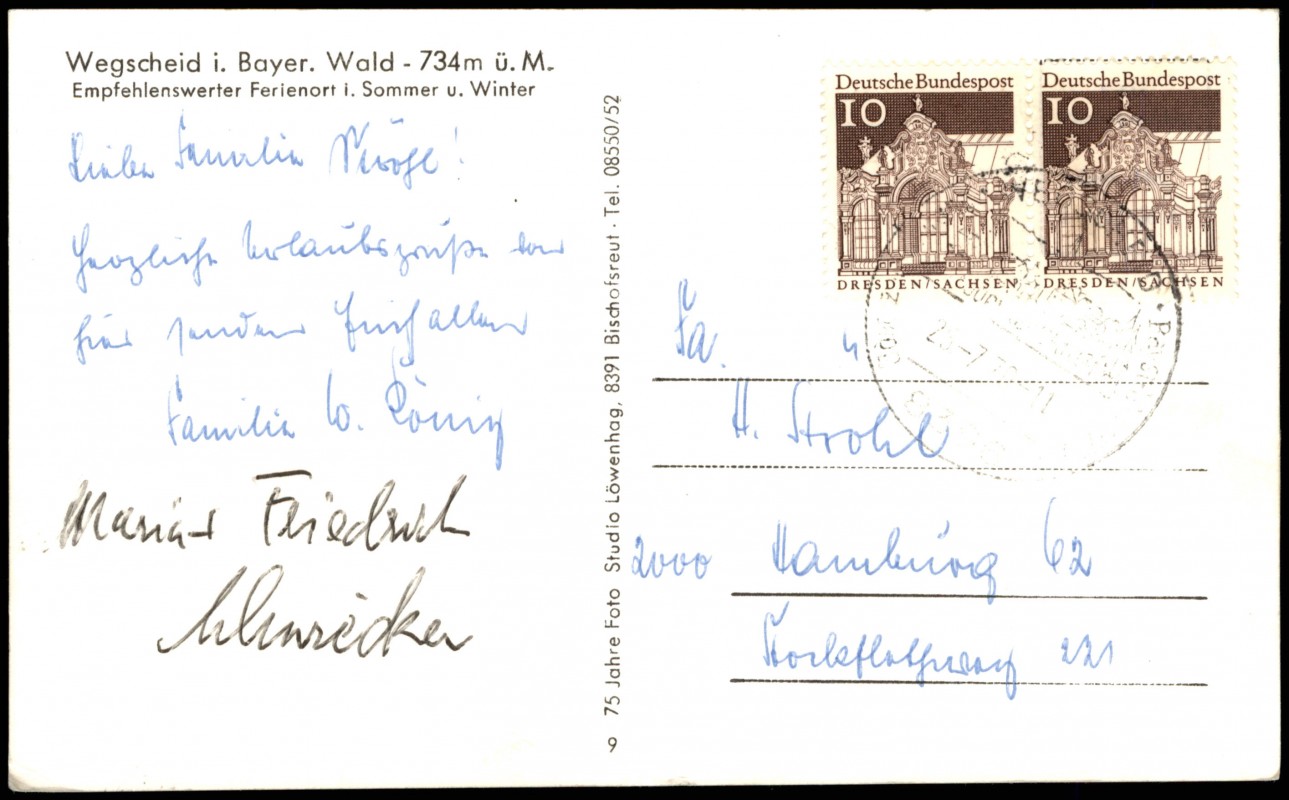 Wegscheid i. Bayer. Wald - 734m ü. M.
Empfehlenswerter Ferienort i. Sommer u. Winter
Liebe Familie Strohl!
Herzliche Urlaubsgrüße von
hier senden Euch allen
Familie W. König
Maria + Friedrich
75 Jahre Foto Studio Löwenhag, 8391 Bischofsreut · Tel. 08550/52
9
Deutsche Bundespost
10
DRESDEN/SACHSEN
Deutsche Bundespost
10
DRESDEN/SACHSEN
Fa.
H. Strohl
2000 Hamburg 62
221